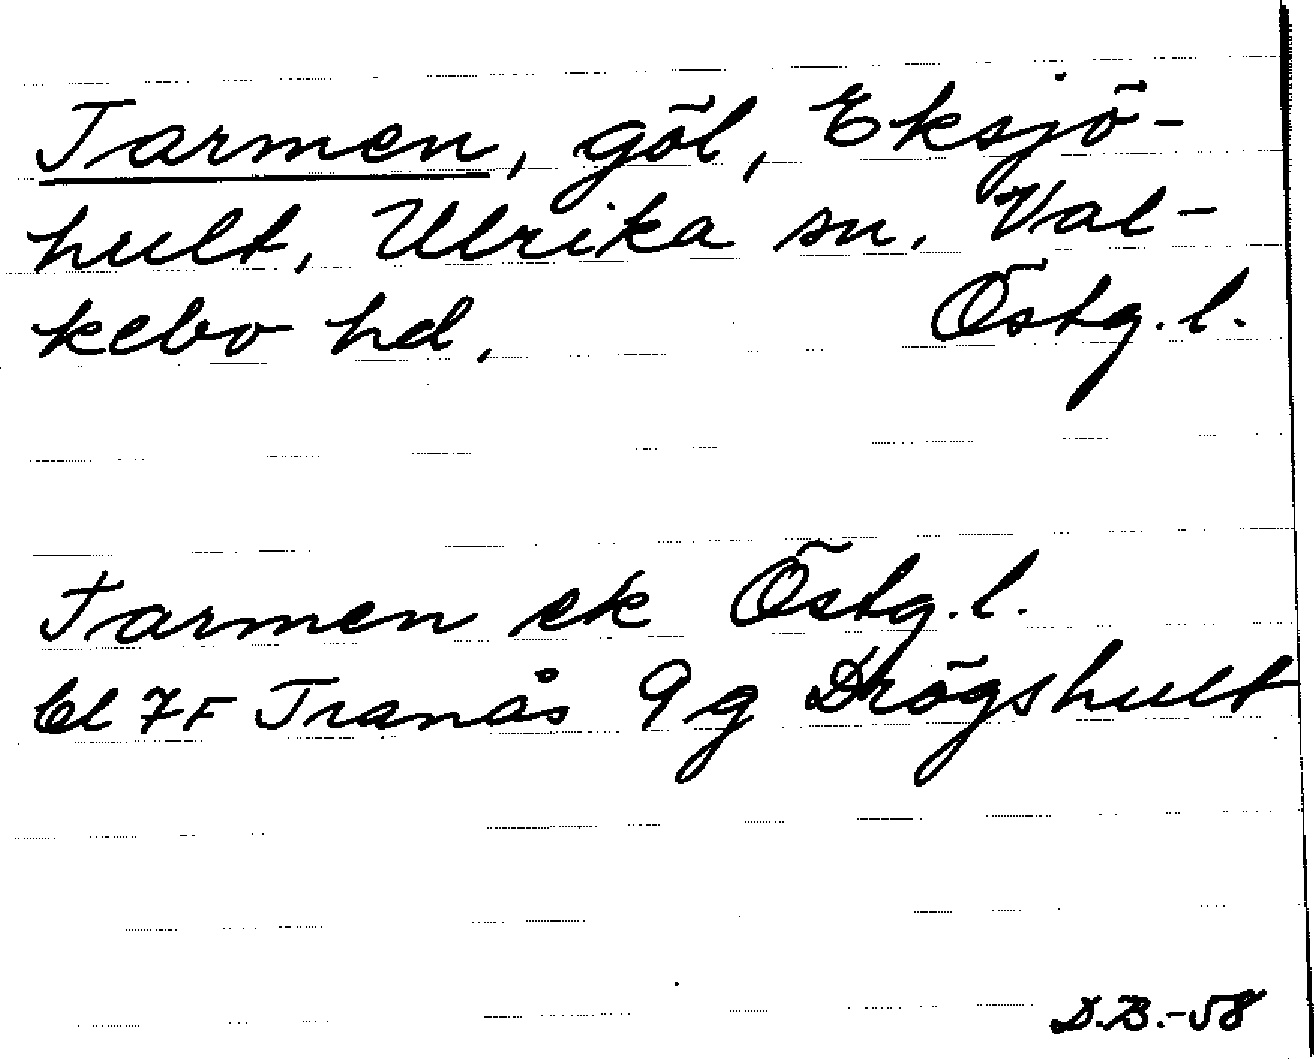 Tarmen, göl, Eksjö-
hult, Ulrika sn. Val-
kebo hd. Östg.l.
Tarmen ek Östg.l.
bl 7F Tranås 9g Drögshult
D.B.-58